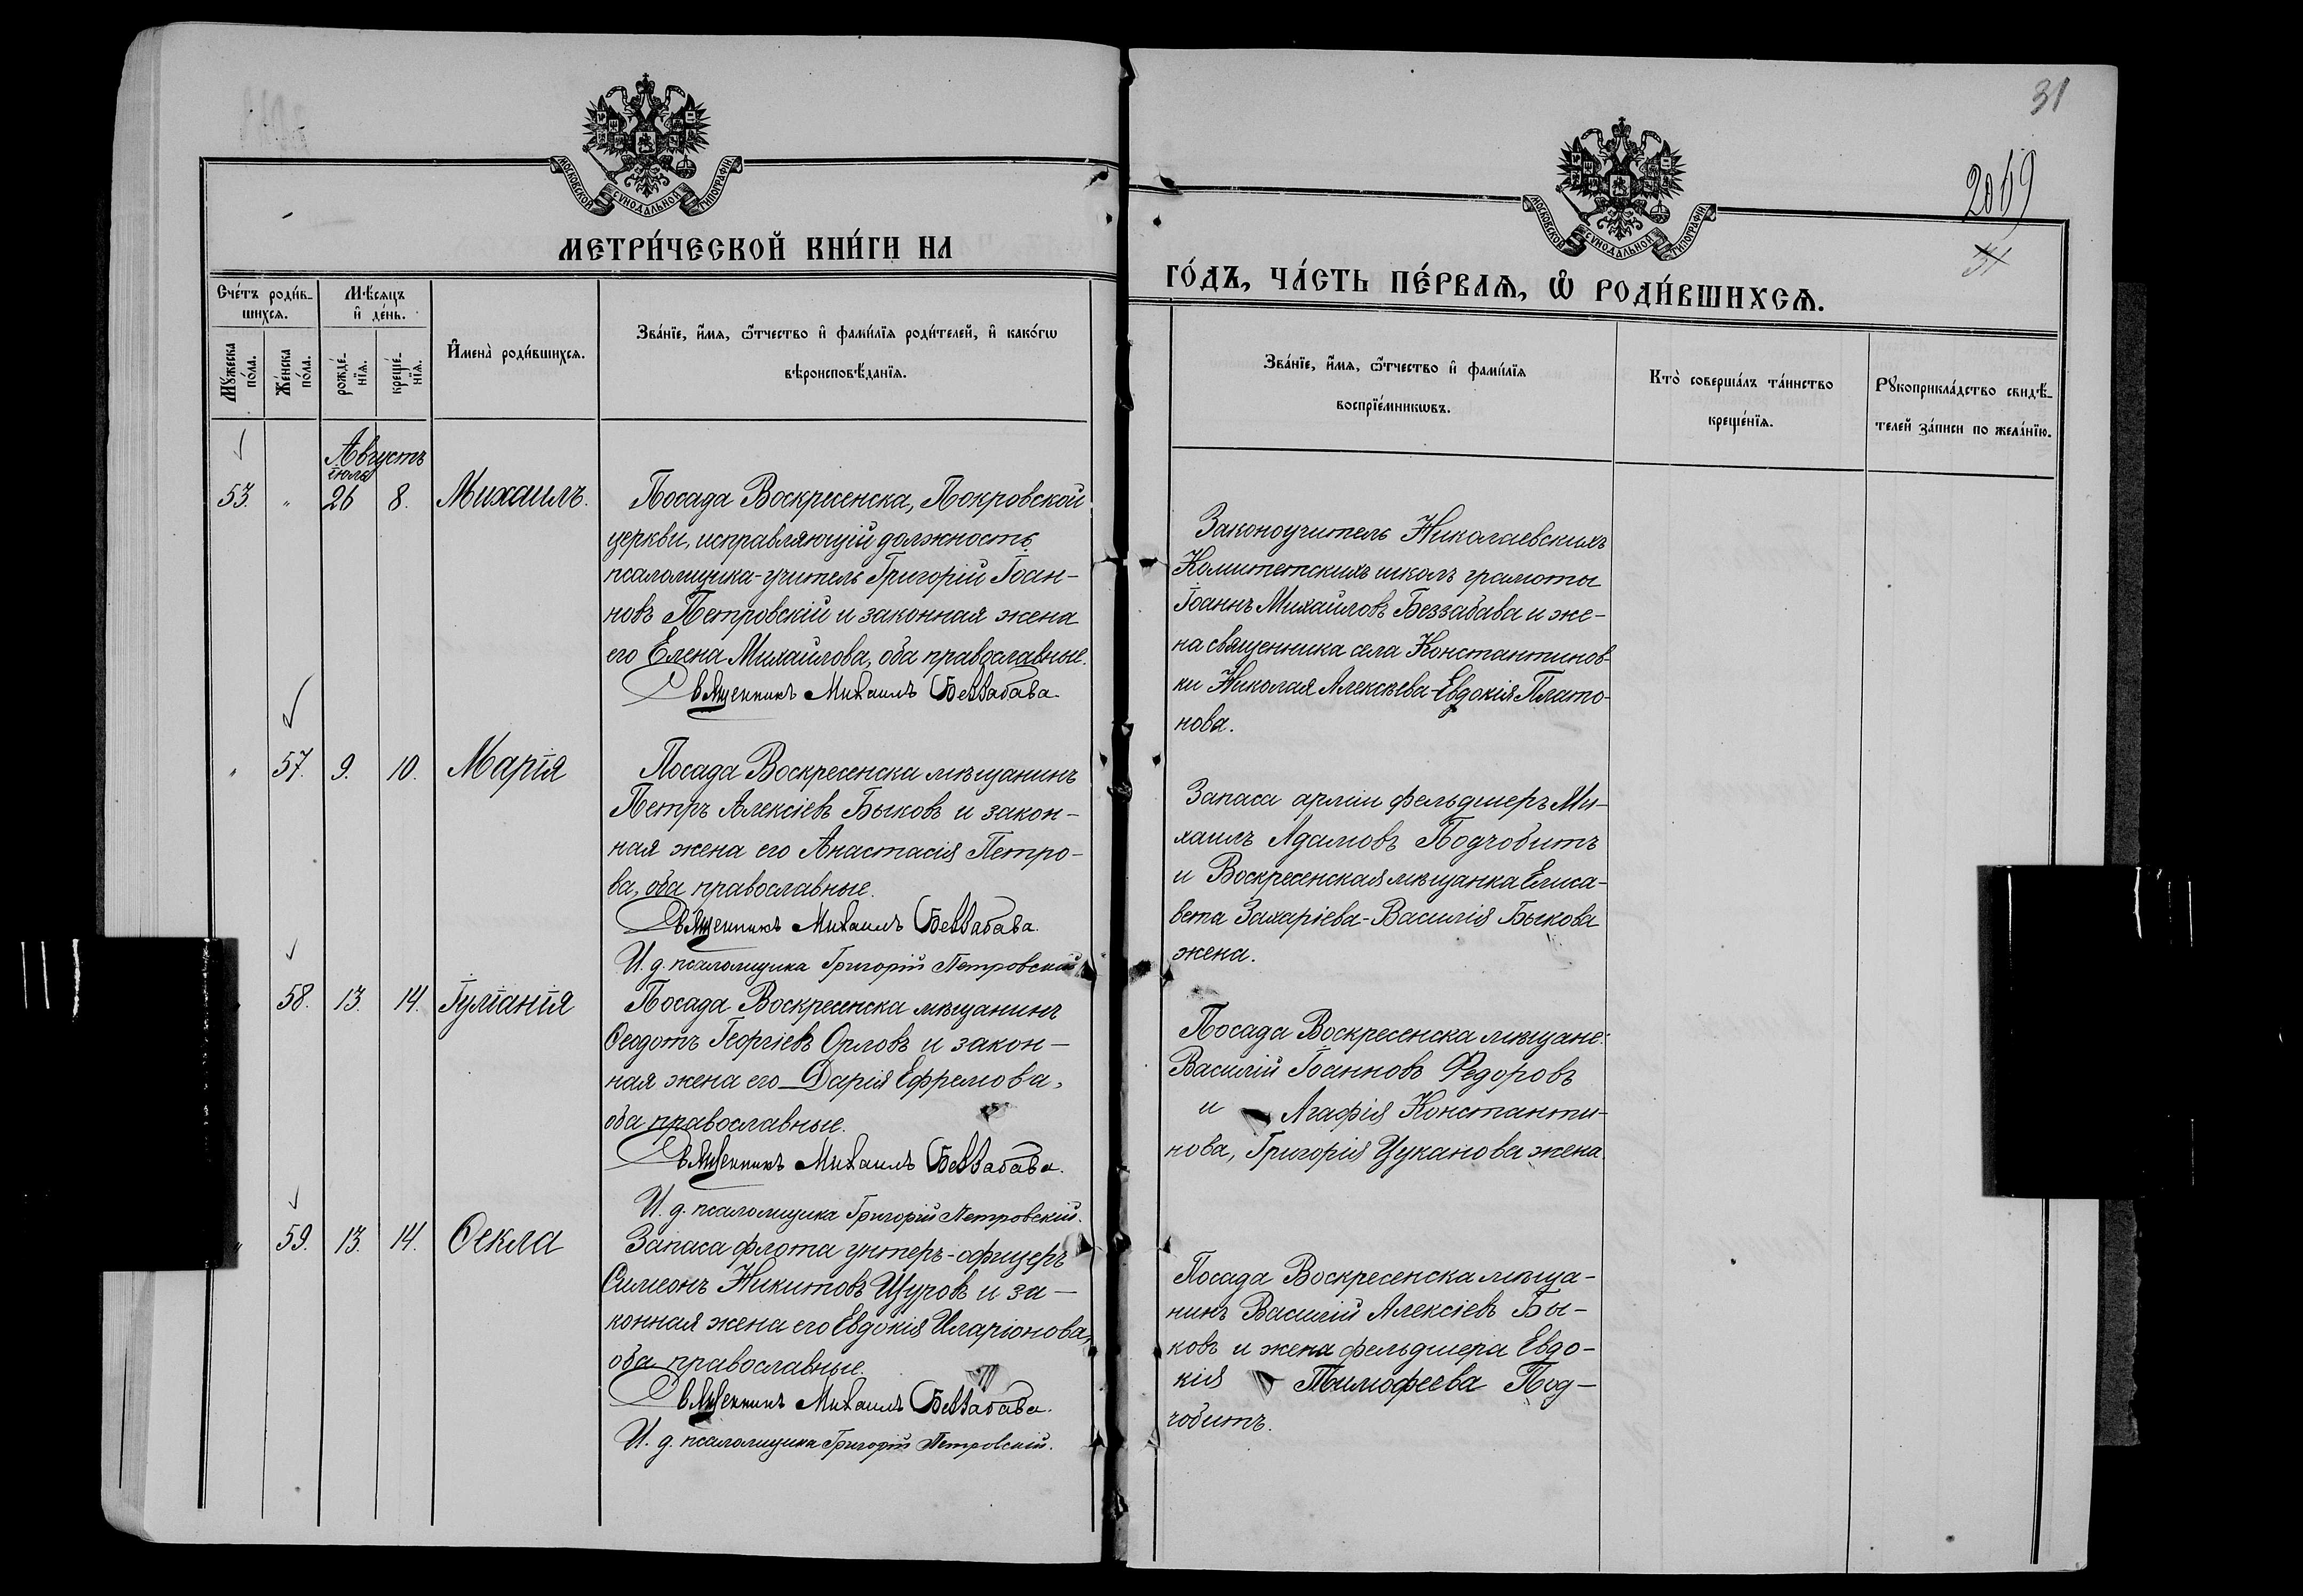 31
2069
31
МОСКОВСКОЙ СѴНОДАЛЬНОЙ ТИПОГРАФІИ
МОСКОВСКОЙ СѴНОДАЛЬНОЙ ТИПОГРАФІИ
МЕТРИ́ЧЕСКОЙ КНИ́ГИ НА
ГО́ДЪ, ЧА́СТЬ ПЕ́РВАѦ, Ѡ҆ РОДИ́ВШИХСѦ.
Сче́тъ роди́в-
шихсѧ.
Мѣ́сѧцъ
и҆ де́нь.
Мꙋ́жеска
по́ла.
Же́нска
по́ла.
рожде́-
нїѧ.
креще́-
нїѧ.
И҆мена̀ роди́вшихсѧ.
Зва́нїе, и҆́мѧ, ѻ҆́тчество и҆ фами́лїѧ роди́телей, и҆ како́гѡ
вѣроисповѣ́данїѧ.
Зва́нїе, и҆́мѧ, ѻ҆́тчество и҆ фами́лїѧ
воспрїе́мникѡвъ.
Кто̀ соверша́лъ та́инство
креще́нїѧ.
Рꙋкоприкла́дство свидѣ́-
телей за́писи по жела́нїю.
Августъ
іюля
53. " 26 8. Михаилъ.
Посада Воскресенска, Покровской
церкви, исправляющій должность
псаломщика-учитель Григорій Іоан-
новъ Петровскій и законная жена
его Елена Михайлова, оба православные.
Священникъ Михаилъ Беззабава.
Законоучитель Николаевскихъ
Комитетскихъ школъ грамоты
Іоаннъ Михайловъ Беззабава и же-
на священника села Константинов-
ки Николая Алексѣева-Евдокія Плато-
нова.
" 57. 9. 10. Марія
Посада Воскресенска мѣщанинъ
Петръ Алексіевъ Быковъ и закон-
ная жена его Анастасія Петро-
ва, оба православные.
Священникъ Михаилъ Беззабава.
И. д. псаломщика Григорій Петровскій
Запаса арміи фельдшеръ Ми-
хаилъ Адамовъ Подчобитъ
и Воскресенская мѣщанка Елиса-
вета Захаріева-Василія Быкова
жена.
58. 13. 14. Іуліанія
Посада Воскресенска мѣщанинъ
Ѳеодотъ Георгіевъ Орловъ и закон-
ная жена его Дарія Ефремова,
оба православные.
Священникъ Михаилъ Беззабава.
И. д. псаломщика Григорій Петровскій.
Посада Воскресенска мѣщане:
Василій Іоанновъ Федоровъ
и Агафія Константи-
нова, Григорія Цуканова жена
" 59. 13. 14. Ѳекла
Запаса флота унтеръ-офицеръ
Симеонъ Никитовъ Щуровъ и за-
конная жена его Евдокія Иларіонова,
оба православные.
Священникъ Михаилъ Беззабава.
И. д. псаломщика Григорій Петровскій.
Посада Воскресенска мѣща-
нинъ Василій Алексіевъ Бы-
ковъ и жена фельдшера Евдо-
кія Тимофеева Под-
чобитъ.